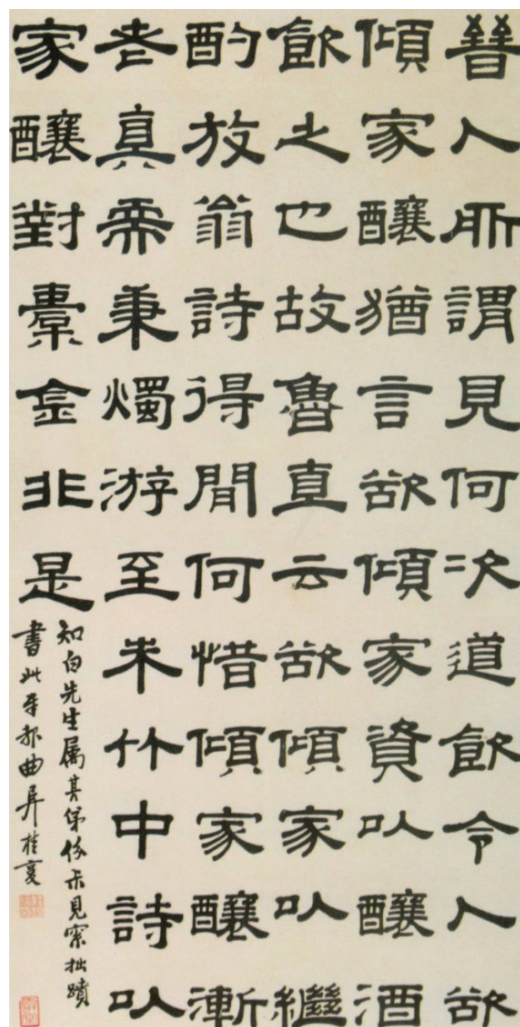 晉人所謂見何次道飲令人欲
傾家釀猶言欲傾家資以釀酒
飲之也故魯直云欲傾家以繼
酌放翁詩得閒何惜傾家釀漸
老真需秉燭游至朱竹中詩以
家釀對橐金非是
知白先生属其示見索拙蹟
書此報曲阜桂馥